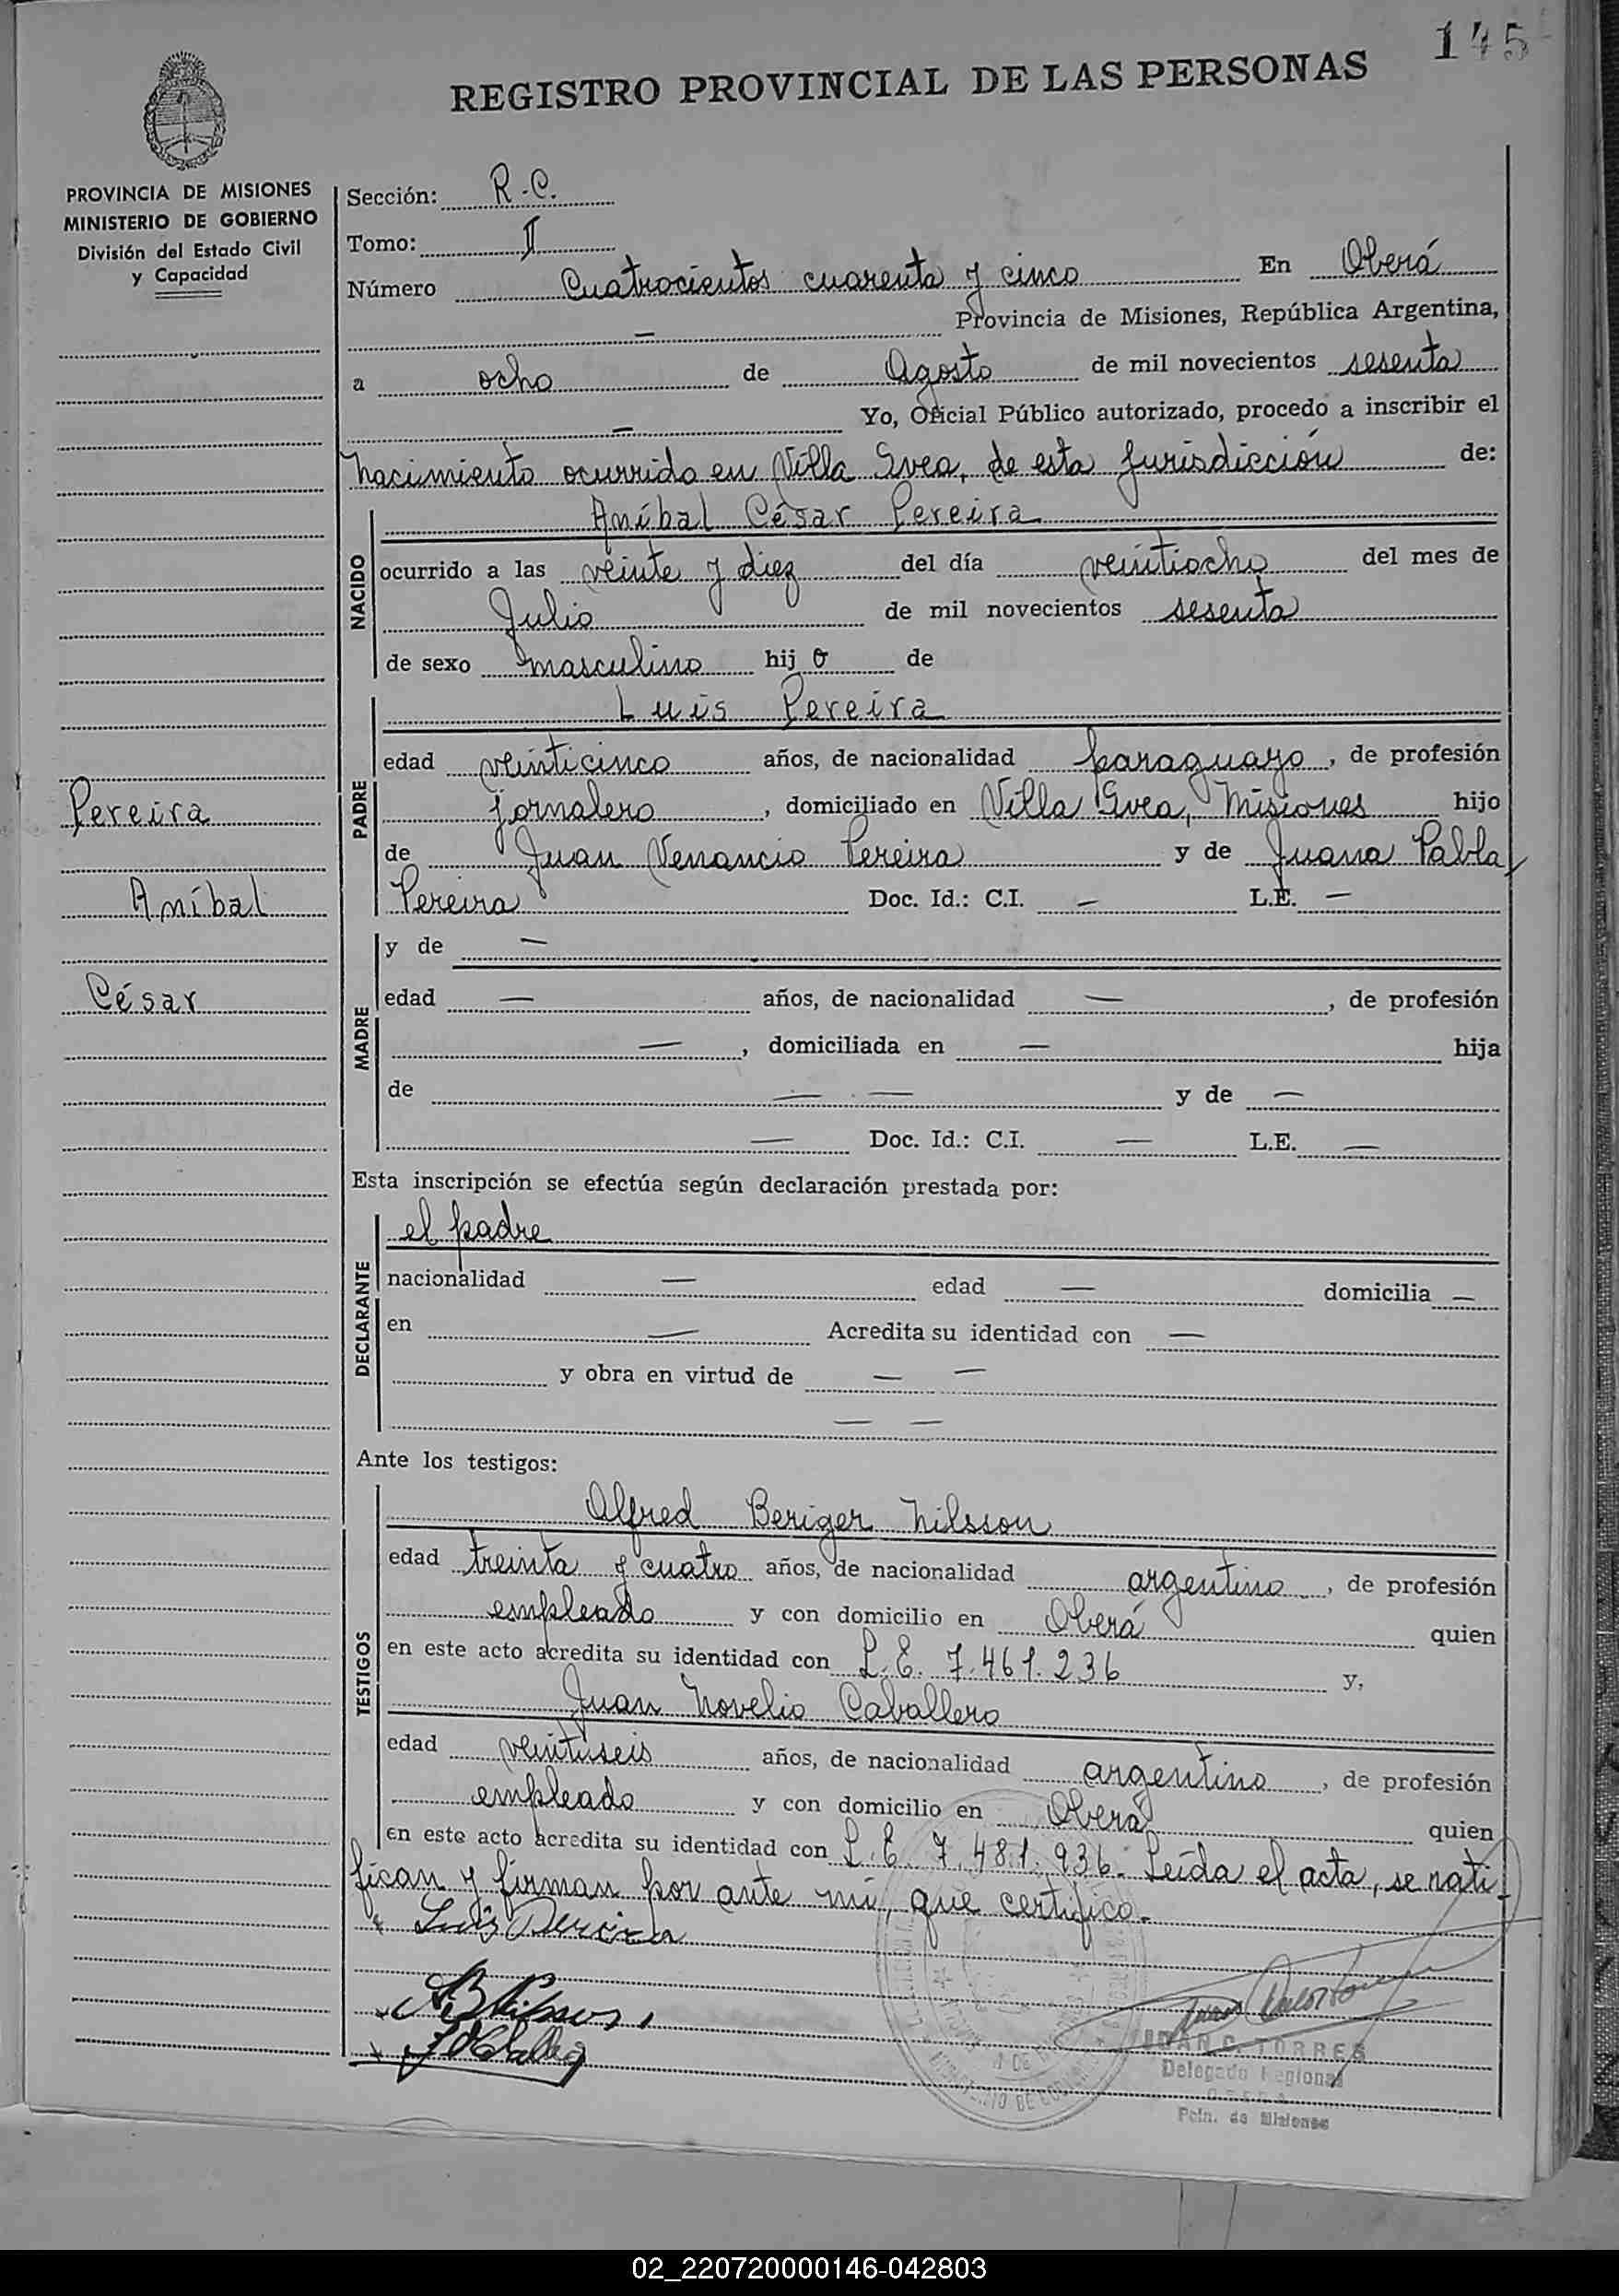 145
REGISTRO PROVINCIAL DE LAS PERSONAS
PROVINCIA DE MISIONES
MINISTERIO DE GOBIERNO
División del Estado Civil
y Capacidad
Sección: R.C.
Tomo: II
Número Cuatrocientos cuarenta y cinco En Oberá
— Provincia de Misiones, República Argentina,
a ocho de Agosto de mil novecientos sesenta
— Yo, Oficial Público autorizado, procedo a inscribir el
nacimiento ocurrido en Villa Svea, de esta Jurisdicción de:
NACIDO
Aníbal César Pereira
ocurrido a las veinte y diez del día veintiocho del mes de
Julio de mil novecientos sesenta
de sexo masculino hij o de
PADRE
Luis Pereira
edad veinticinco años, de nacionalidad paraguayo, de profesión
jornalero, domiciliado en Villa Svea, Misiones hijo
de Juan Venancio Pereira y de Juana Pabla
Pereira Doc. Id.: C.I. — L.E. —
Pereira
Aníbal
César
MADRE
y de —
edad — años, de nacionalidad —, de profesión
—, domiciliada en — hija
de — — y de —
— Doc. Id.: C.I. — L.E. —
Esta inscripción se efectúa según declaración prestada por:
DECLARANTE
el padre
nacionalidad — edad — domicilia —
en — Acredita su identidad con —
y obra en virtud de — —
— —
Ante los testigos:
TESTIGOS
Alfred Beriger Nilsson
edad treinta y cuatro años, de nacionalidad argentino, de profesión
empleado y con domicilio en Oberá quien
en este acto acredita su identidad con L.E. 7.461.236 y,
Juan Novelio Caballero
edad veintiseis años, de nacionalidad argentino, de profesión
empleado y con domicilio en Oberá quien
en este acto acredita su identidad con L.E. 7.481.936.- Leída el acta, se rati-
fican y firman por ante mí, que certifico.-
Luis Pereira
JUAN C. TORRES
Delegado Regional
OBERA
Pcia. de Misiones
02_220720000146-042803